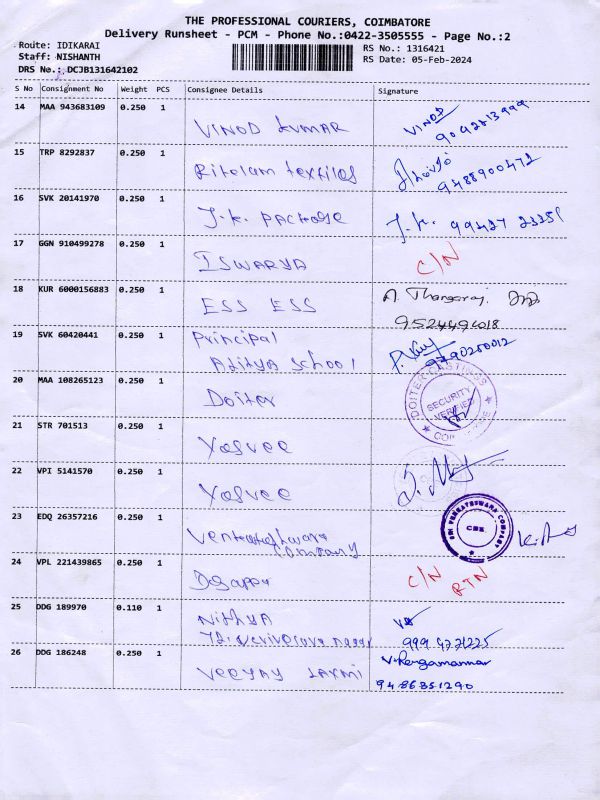 THE PROFESSIONAL COURIERS, COIMBATORE
Delivery Runsheet - PCM - Phone No.:0422-3505555 - Page No.:2
Route: IDIKARAI RS No.: 1316421
Staff: NISHANTH RS Date: 05-Feb-2024
DRS No.: DCJB131642102
S No Consignment No Weight PCS Consignee Details Signature
14 MAA 943683109 0.250 1 VINOD KUMAR VINOD
15 TRP 8292837 0.250 1 Ritolam textiles
9488900471
16 SVK 20141970 0.250 1 J.K. PACKAGE J.K. 99427
17 GGN 910499278 0.250 1 ISWARYA C/N
18 KUR 6000156883 0.250 1 ESS ESS A. Thangaraj
19 SVK 60420441 0.250 1 Principal
Aditya School 9790250012
20 MAA 108265123 0.250 1 Doiter
DOITER CASTINGS
SECURITY
VERIFIED
21 STR 701513 0.250 1 Yasvee
22 VPI 5141570 0.250 1 Yasvee
23 EDQ 26357216 0.250 1 Venkateshwara
Company
SRI VENKATESWARA COMPANY
CBE
24 VPL 221439865 0.250 1 C/N RTN
25 DDG 189970 0.110 1 Nithya
26 DDG 186248 0.250 1 VEEJAY LAXMI V.Rengamannar
9486351290